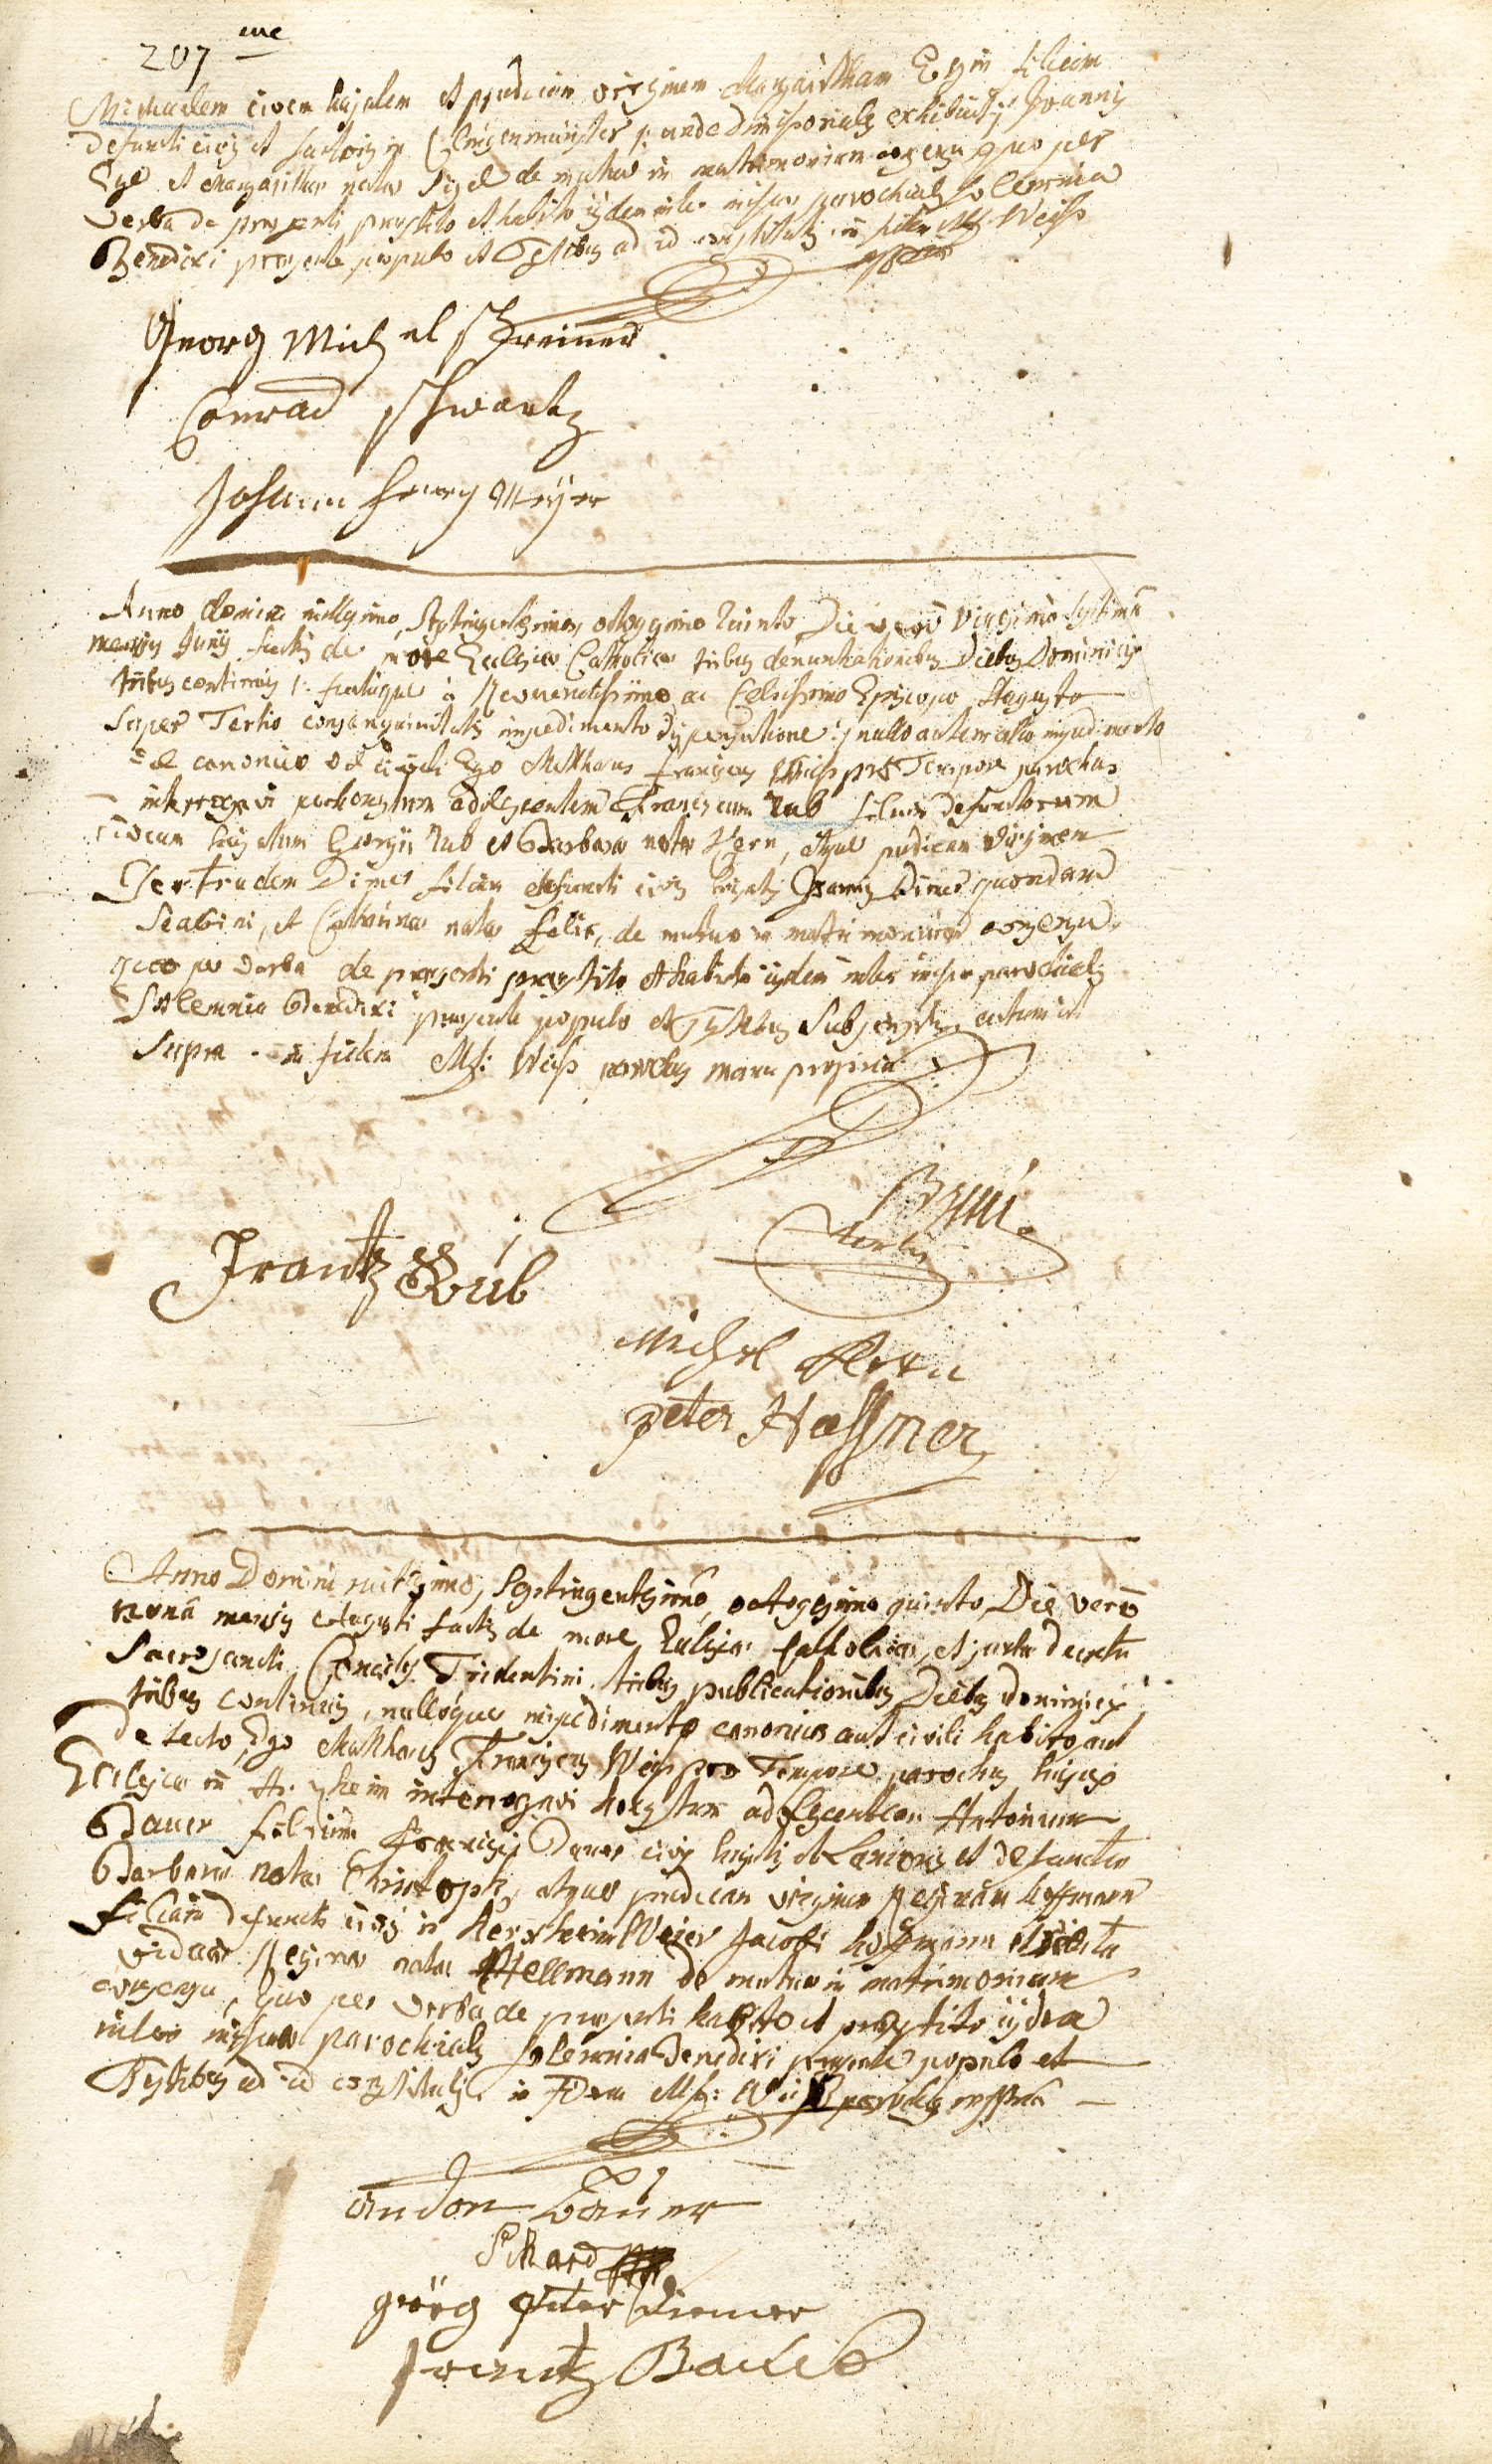 207 me
Michaelem civem hujatem et pudicam virginem Margaritham Egin filiam
defuncti civis et sartoris in Clingenmünster /: unde dimissoriales exhibuit :/ Joannis
et Margarithae natae de mutuo in matrimonium consensu quo per
verba de praesenti praestito et habito ijdem inter missae parochialis solemnia
Benedixi praesente populo et Testibus ad id constitutis in fidem Mf: Weiss
Georg Michel Schreiner
Conrad Schwartz
Johann Henry Meÿer
Anno domini millesimo, Septingentesimo, octogesimo quinto Die vero vigesima septima
mensis Junij factis de more Ecclesiae Catholicae tribus denuntiationibus Diebus Dominicis
tribus continuis /: factaque à Reverendissimo ac Celsissimo Episcopo Augusto
super Tertio consanguinitatis impedimento dispensatione :/ nullo autem alio impedimento
vel canonico vel civili Ego Matthaeus Franciscus Weiss pro Tempore parochus
interrogavi honestum adolescentem Franciscum Rub filium defunctorum
civium hujatum Georgii Rub et Barbara nata Kern, atque pudicam virginem
Gertrudem Dimer filiam defuncti civis hujatis Joannis Dimer quondam
Scabini, et Catharina nata Felix, de mutuo in matrimonium consensu,
quo per verba de praesenti praestito et habito ijdem inter missae parochialis
Solemnia Benedixi praesente populo et Testibus Subscriptis, actum ut
Supra in fidem Mf: Weiss parochus manu propria
Frantz Rub
Michel Kern
peter Haffner
Anno Domini millesimo, Septingentesimo, octogesimo quinto Die vero
nona mensis Augusti factis de more Ecclesiae Catholicae, et juxta decretum
Sacrosancti Concilij Tridentini, tribus publicationibus Diebus dominicis
tribus continuis, nulloque impedimento canonico aut civili habito aut
Detecto, Ego Matthaeus Franciscus Weiss pro Tempore parochus hujus
Ecclesiae in interrogavi honestum adolescentem Antonium
Bauer filium Francisci Bauer civis hujatis et Lanionis et defunctae
Barbara nata Christoph, atque pudicam virginem Reginam Hoffmann
filiam defuncti civis in Herxheimweier Jacobi Hoffmann et relicta
vidua Regina nata Wellmann de mutuo in matrimonium
consensu, quo per verba de praesenti habito et praestito ijdem
inter missae parochialis solemnia Benedixi praesente populo et
Testibus ad id constitutis in Fidem Mf: Weiss parochus mppria
andon Bauer
Sikard
geörg peter Diemer
frantz Bauer